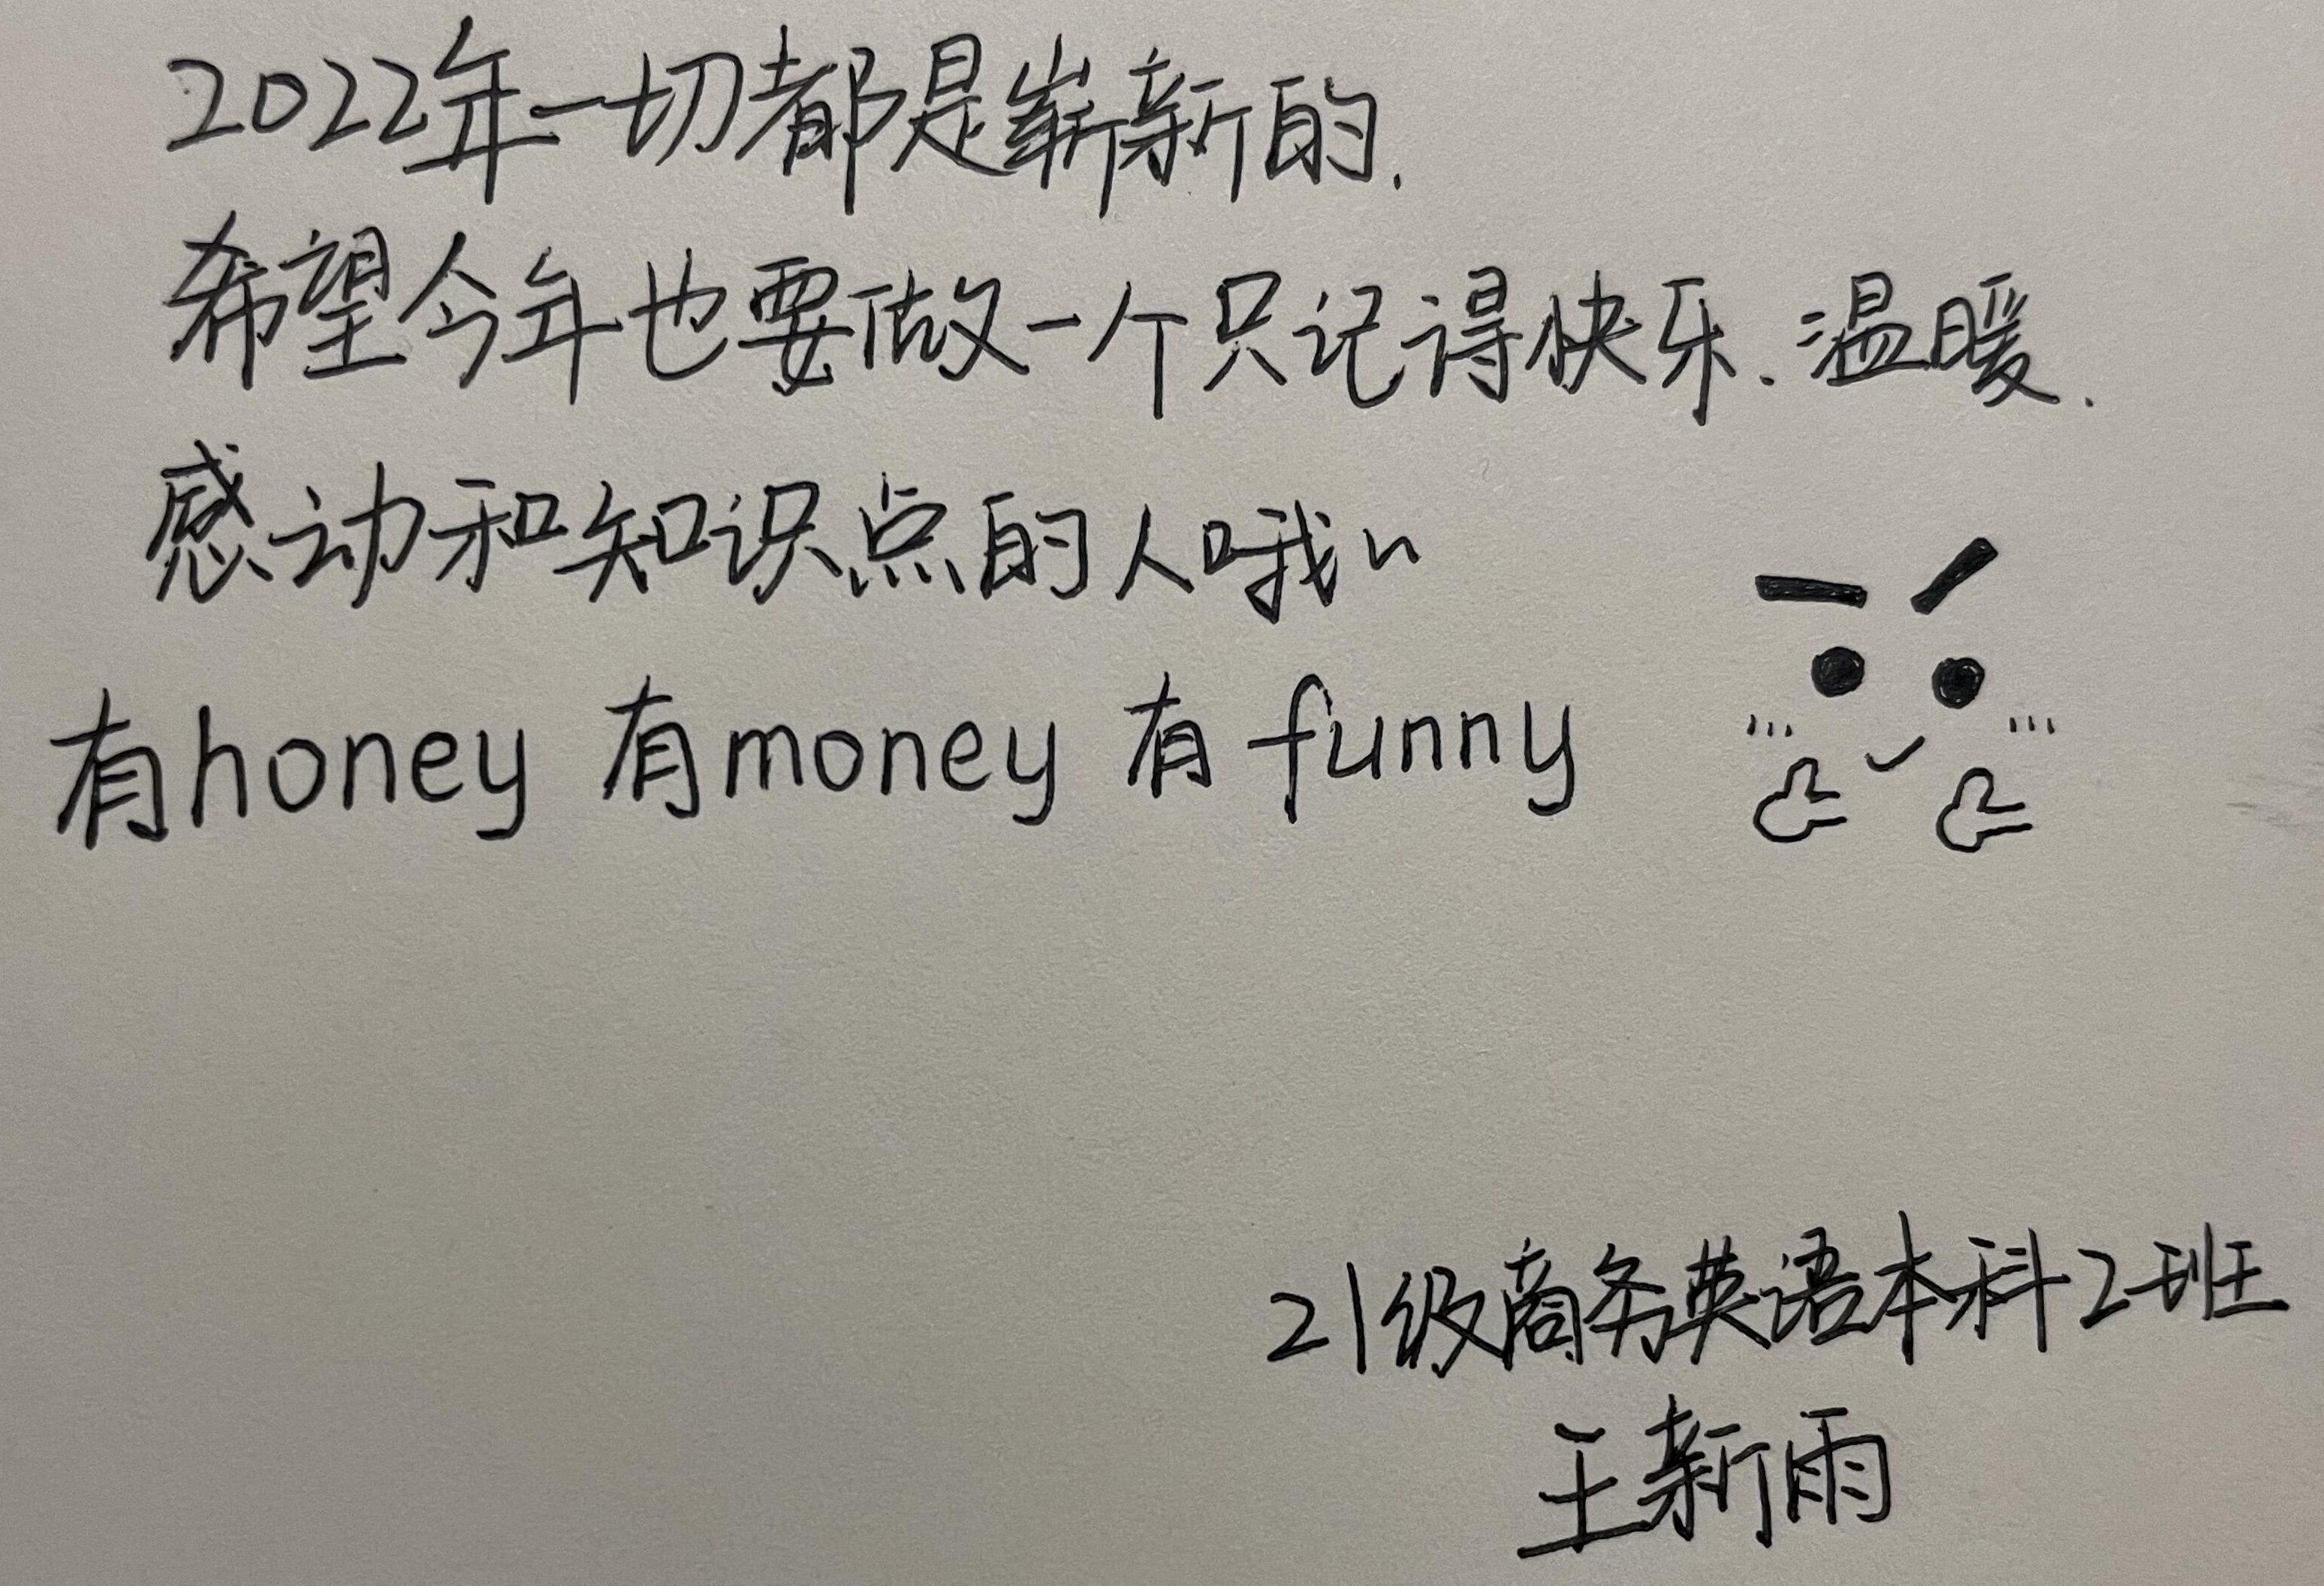 2022年一切都是崭新的.
希望今年也要做一个只记得快乐.温暖.
感动和知识点的人哦~
有honey 有money 有funny
21级商务英语本科2班
王新雨